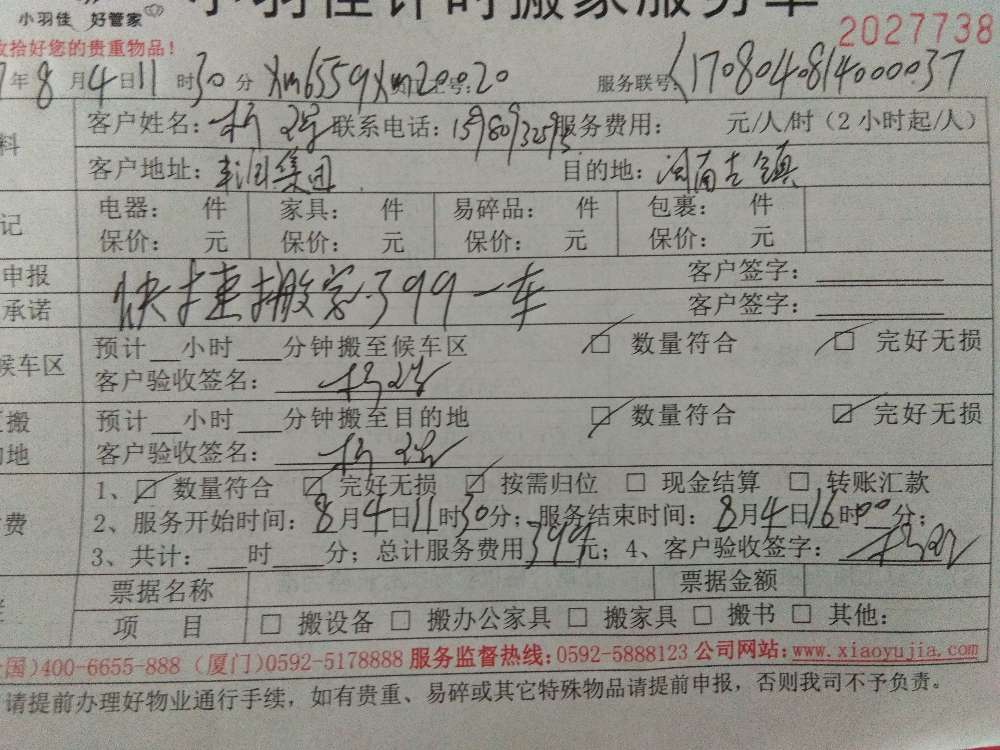 小羽佳 好管家 小羽佳计时搬家服务单
收拾好您的贵重物品! 2027738
7年8月4日11时30分 Xm6559 Xm20020 服务联号:170804081400037
料 客户姓名: 联系电话:15980932593 服务费用: 元/人/时(2小时起/人)
客户地址: 集团 目的地:闽南古镇
记 电器: 件 家具: 件 易碎品: 件 包裹: 件
保价: 元 保价: 元 保价: 元 保价: 元
申报 快捷搬家399一车 客户签字:
承诺 客户签字:
候车区 预计__小时___分钟搬至候车区 ☑ 数量符合 ☑ 完好无损
客户验收签名:
搬 预计__小时___分钟搬至目的地 ☑ 数量符合 ☑ 完好无损
地 客户验收签名:
1、☑ 数量符合 ☑ 完好无损 ☑ 按需归位 □ 现金结算 □ 转账汇款
费 2、服务开始时间:8月4日11时30分;服务结束时间:8月4日16时00分;
3、共计:___时____分;总计服务费用399元;4、客户验收签字:
票据名称 票据金额
项 目 □ 搬设备 □ 搬办公家具 □ 搬家具 □ 搬书 □ 其他:
国)400-6655-888 (厦门)0592-5178888 服务监督热线:0592-5888123 公司网站:www.xiaoyujia.com
请提前办理好物业通行手续,如有贵重、易碎或其它特殊物品请提前申报,否则我司不予负责。